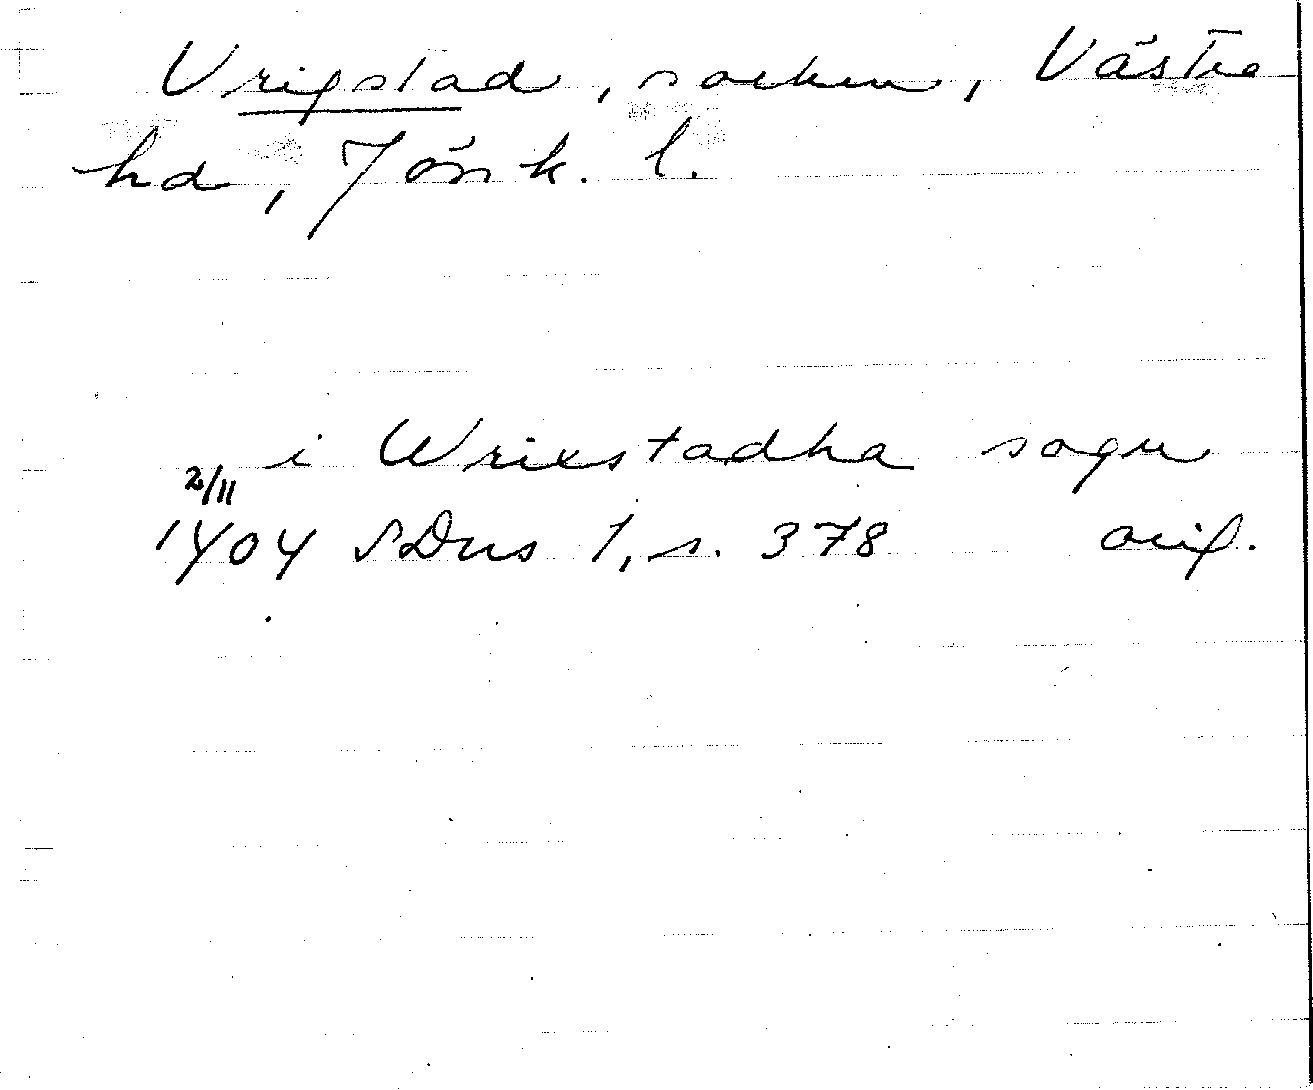 Vrigstad, socken, Västra
hd, Jönk. l.
i Wriestadha sogn
2/11
1404 SDns 1, s. 378 orig.